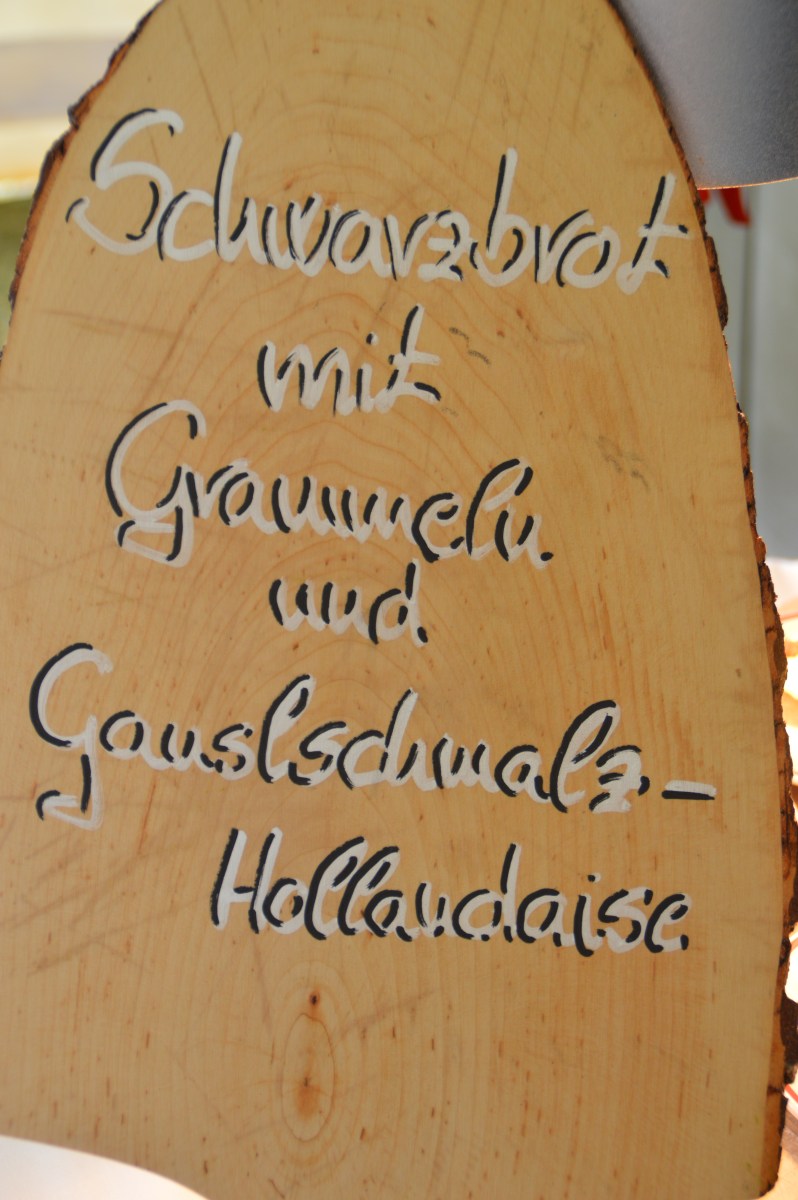 Schwarzbrot
mit
Grammeln
und
Gauslschmalz-
Hollandaise